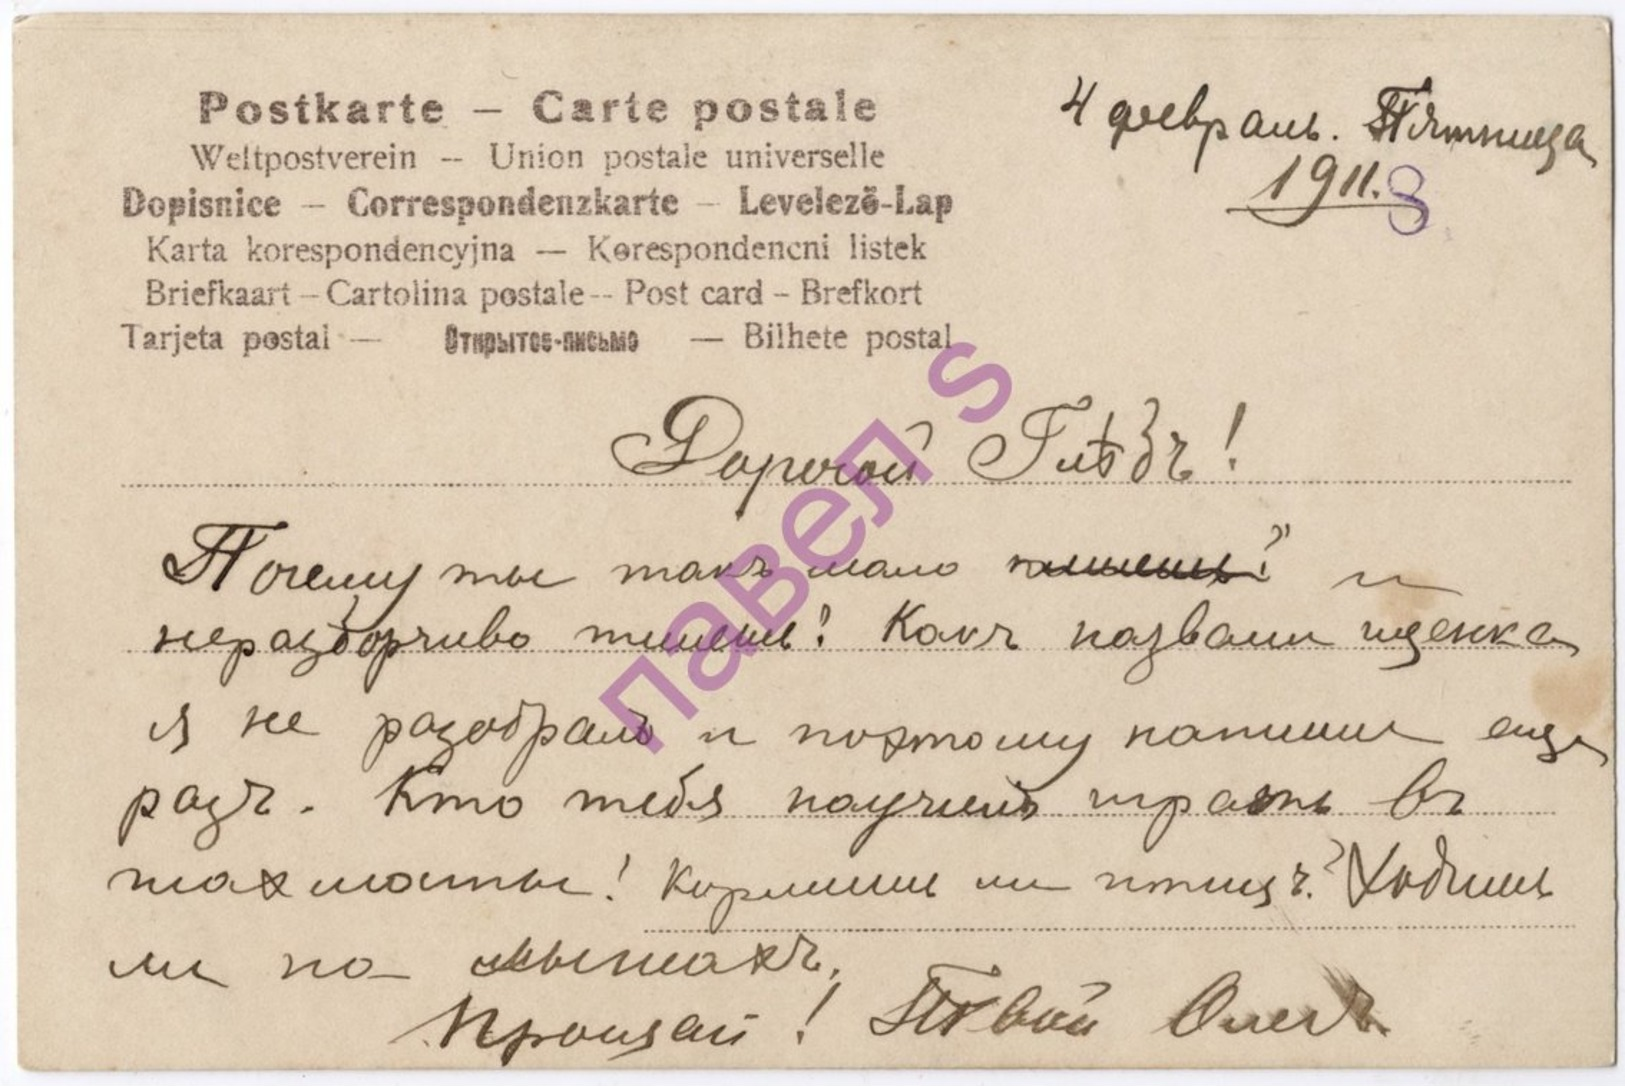 Postkarte – Carte postale
Weltpostverein -- Union postale universelle
Dopisnice – Correspondenzkarte – Levelező-Lap
Karta korespondencyjna — Korespondencni listek
Briefkaart – Cartolina postale -- Post card – Brefkort
Tarjeta postal — Открытое-письмо — Bilhete postal
4 февраль. Пятница
1911. 8
павел s
Дорогой Глѣбъ!
Почему ты такъ мало и
неразборчиво пишешь! Какъ назвали щенка
я не разобралъ и поэтому напиши еще
разъ. Кто тебя научилъ играть въ
шахматы! Кормишь ли птицъ? Ходишь
ли на лыжахъ.
Прощай! Твой Олегъ.